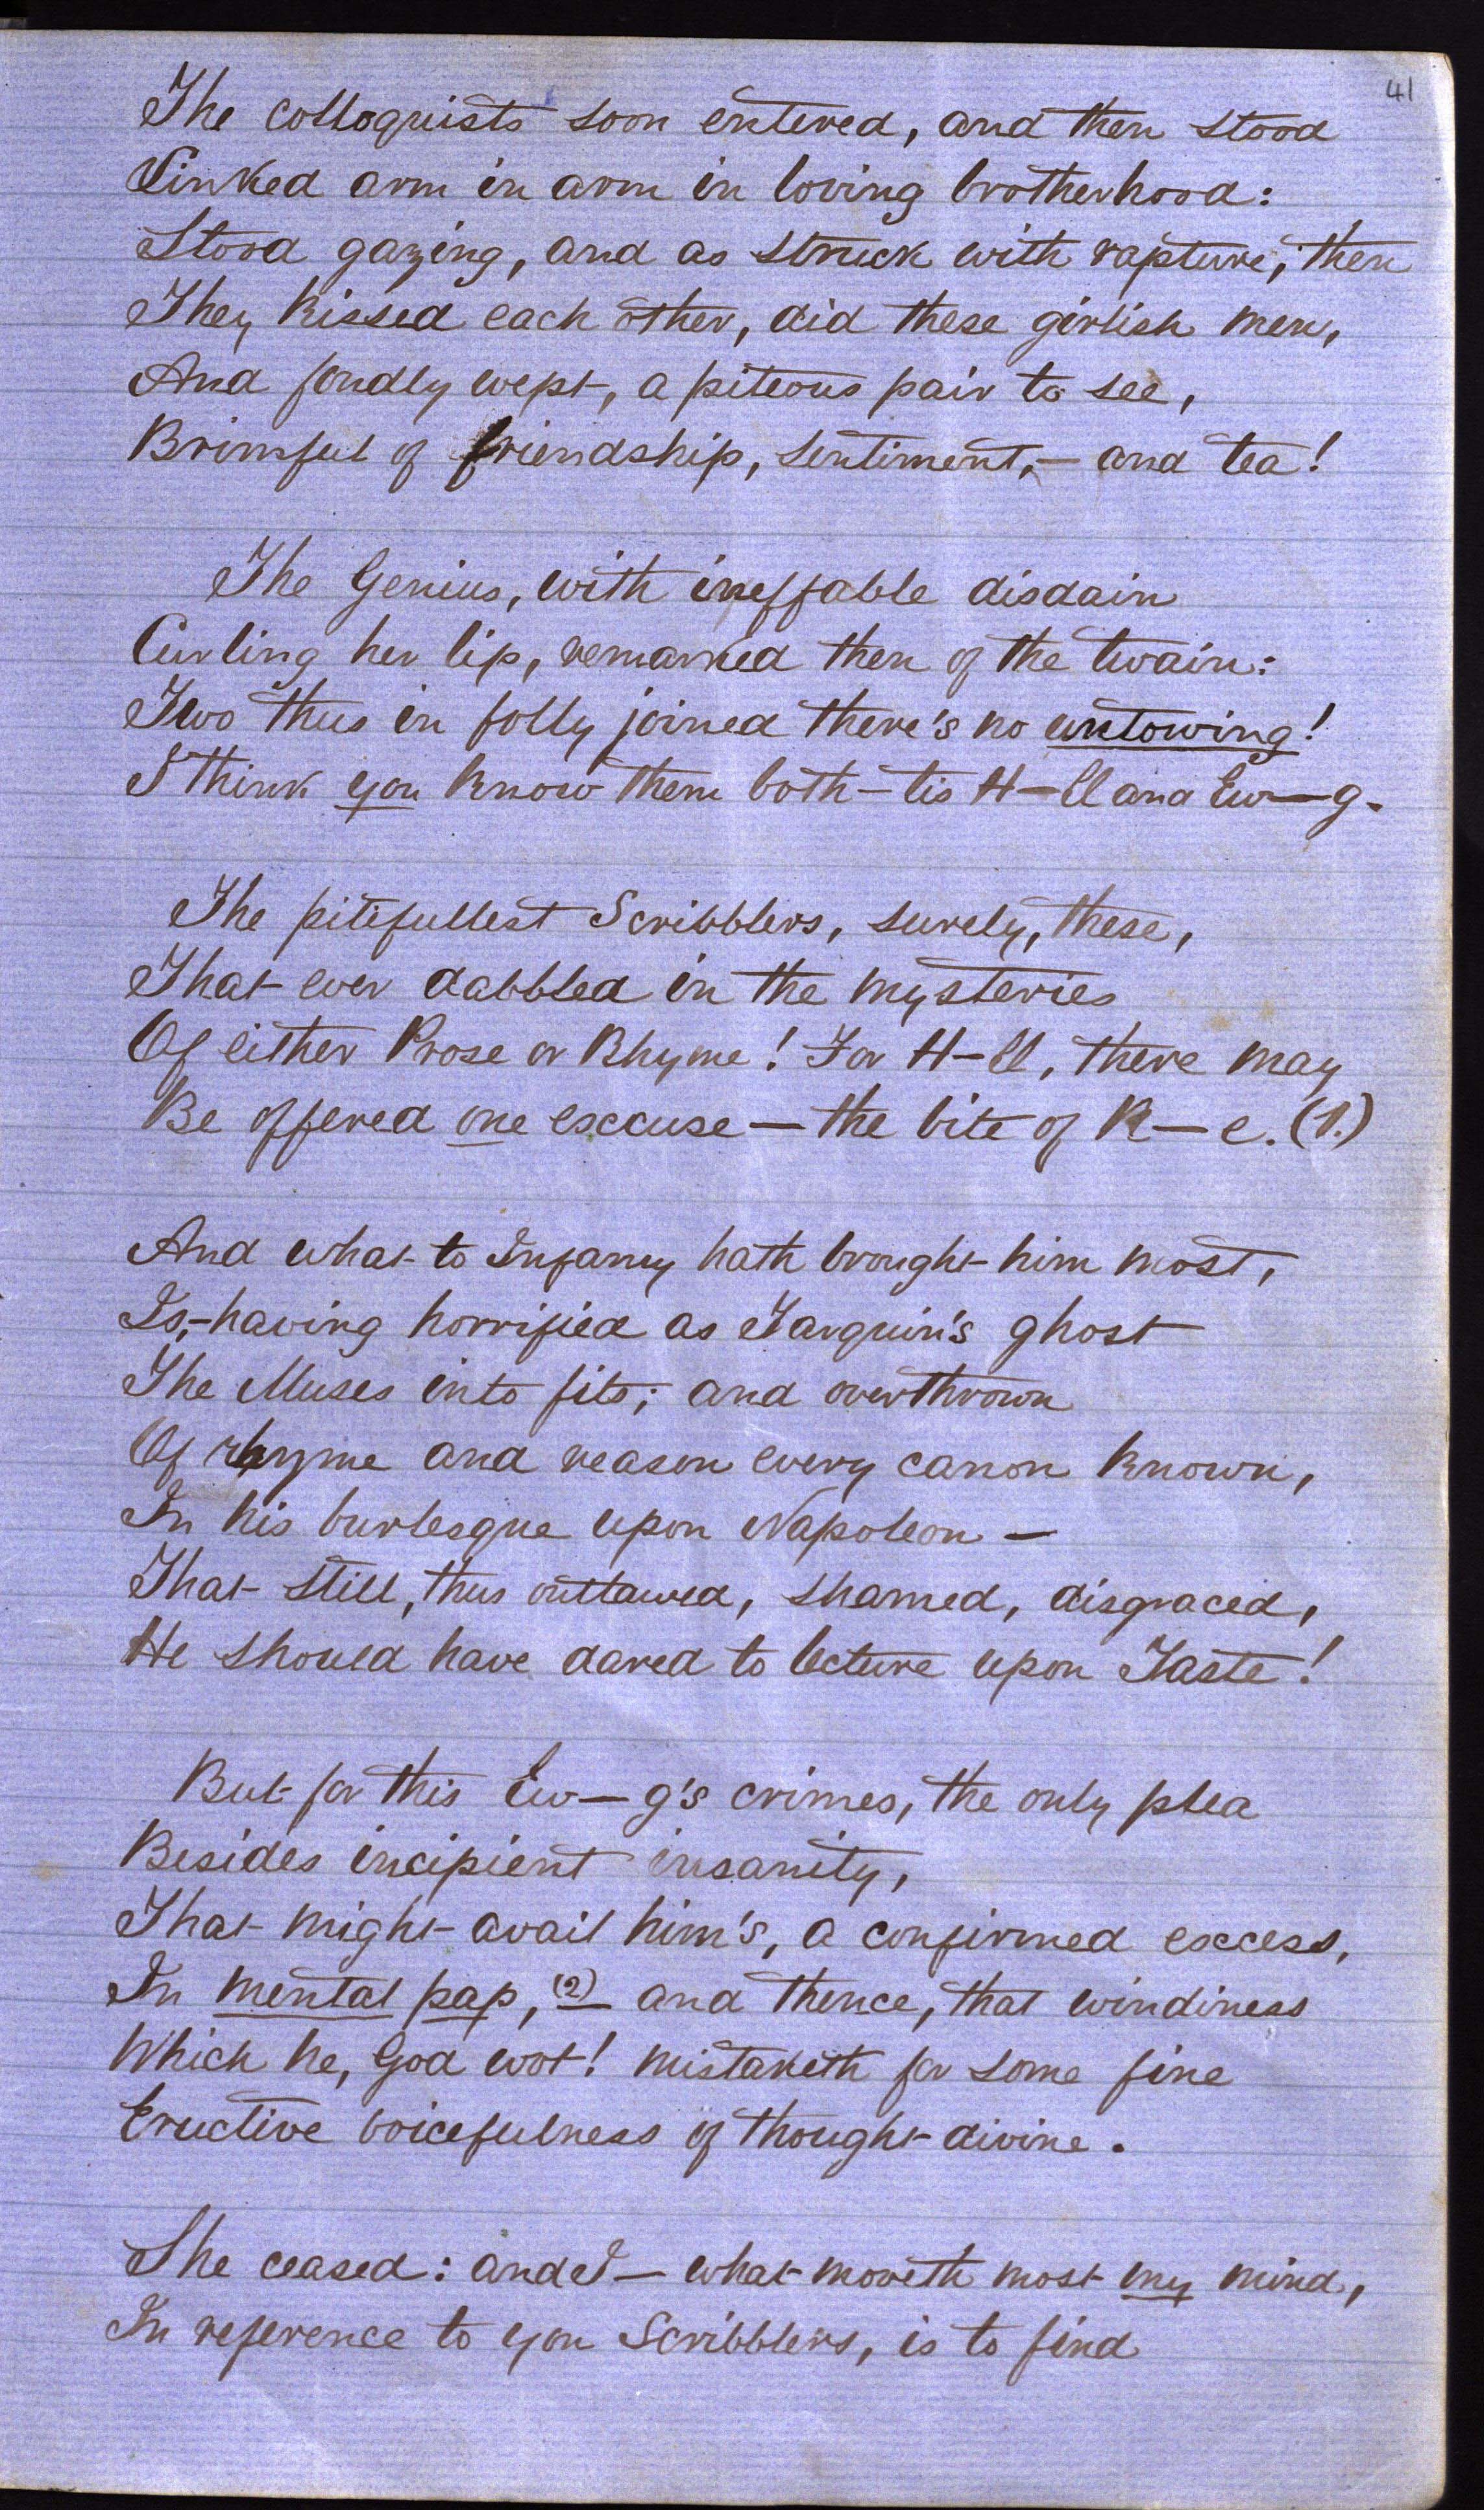 41
The colloquists soon entered, and then stood
Linked arm in arm in loving brotherhood:
Stood gazing, and as struck with rapture; then
They kissed each other, did these girlish men,
And fondly wept, a piteous pair to see,
Brimful of friendship, sentiment,— and tea!
The Genius, with ineffable disdain
Curling her lip, remarked then of the twain:
Two thus in folly joined there's no untowing!
I think you know them both — tis H—ll and Ew—g.
The pitifullest Scribblers, surely, these,
That ever dabbled in the mysteries
Of either Prose or Rhyme! For H—ll, there may
Be offered one excuse — the bite of R—e. (1.)
And what to Infamy hath brought him most,
Is,—having horrified as Tarquin's ghost
The Muses into fits; and overthrown
Of rhyme and reason every canon known,
In his burlesque upon Napoleon —
That still, thus outlawed, shamed, disgraced,
He should have dared to lecture upon Taste!
But for this Ew—g's crimes, the only plea
Besides incipient insanity,
That might avail him's, a confirmed excess,
In mental pap, (2) — and thence, that windiness
Which he, God wot! mistaketh for some fine
Eructive voicefulness of thought divine.
She ceased: and I — what moveth most my mind,
In reference to you Scribblers, is to find